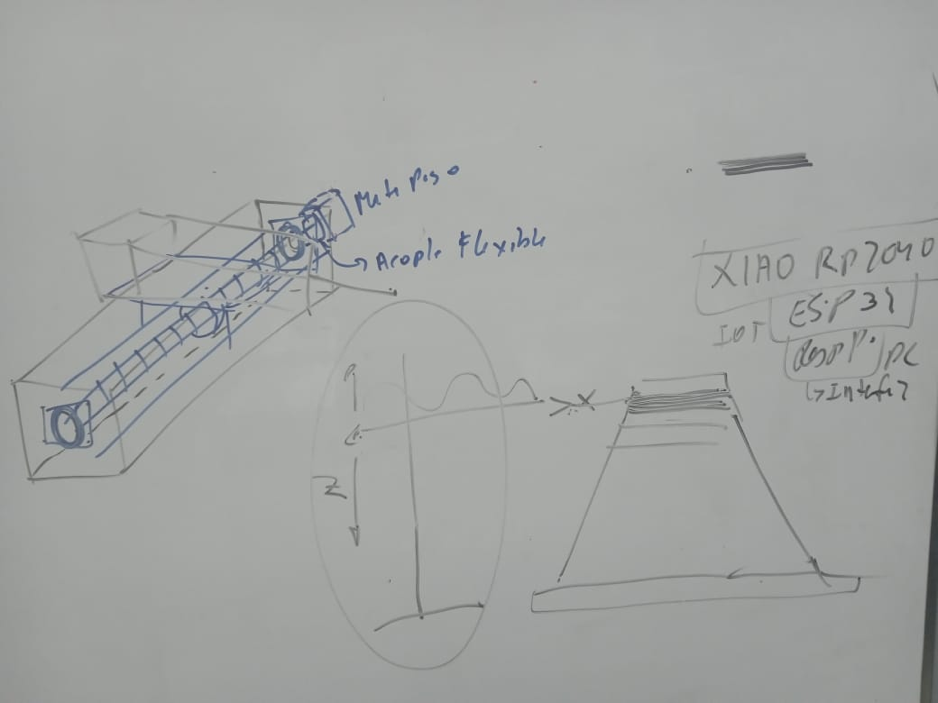 Moto Paso
Acople Flexible
XIAO RP2040
IOT ESP32
Rasp P. PC
↳ Interfaz
Z
X